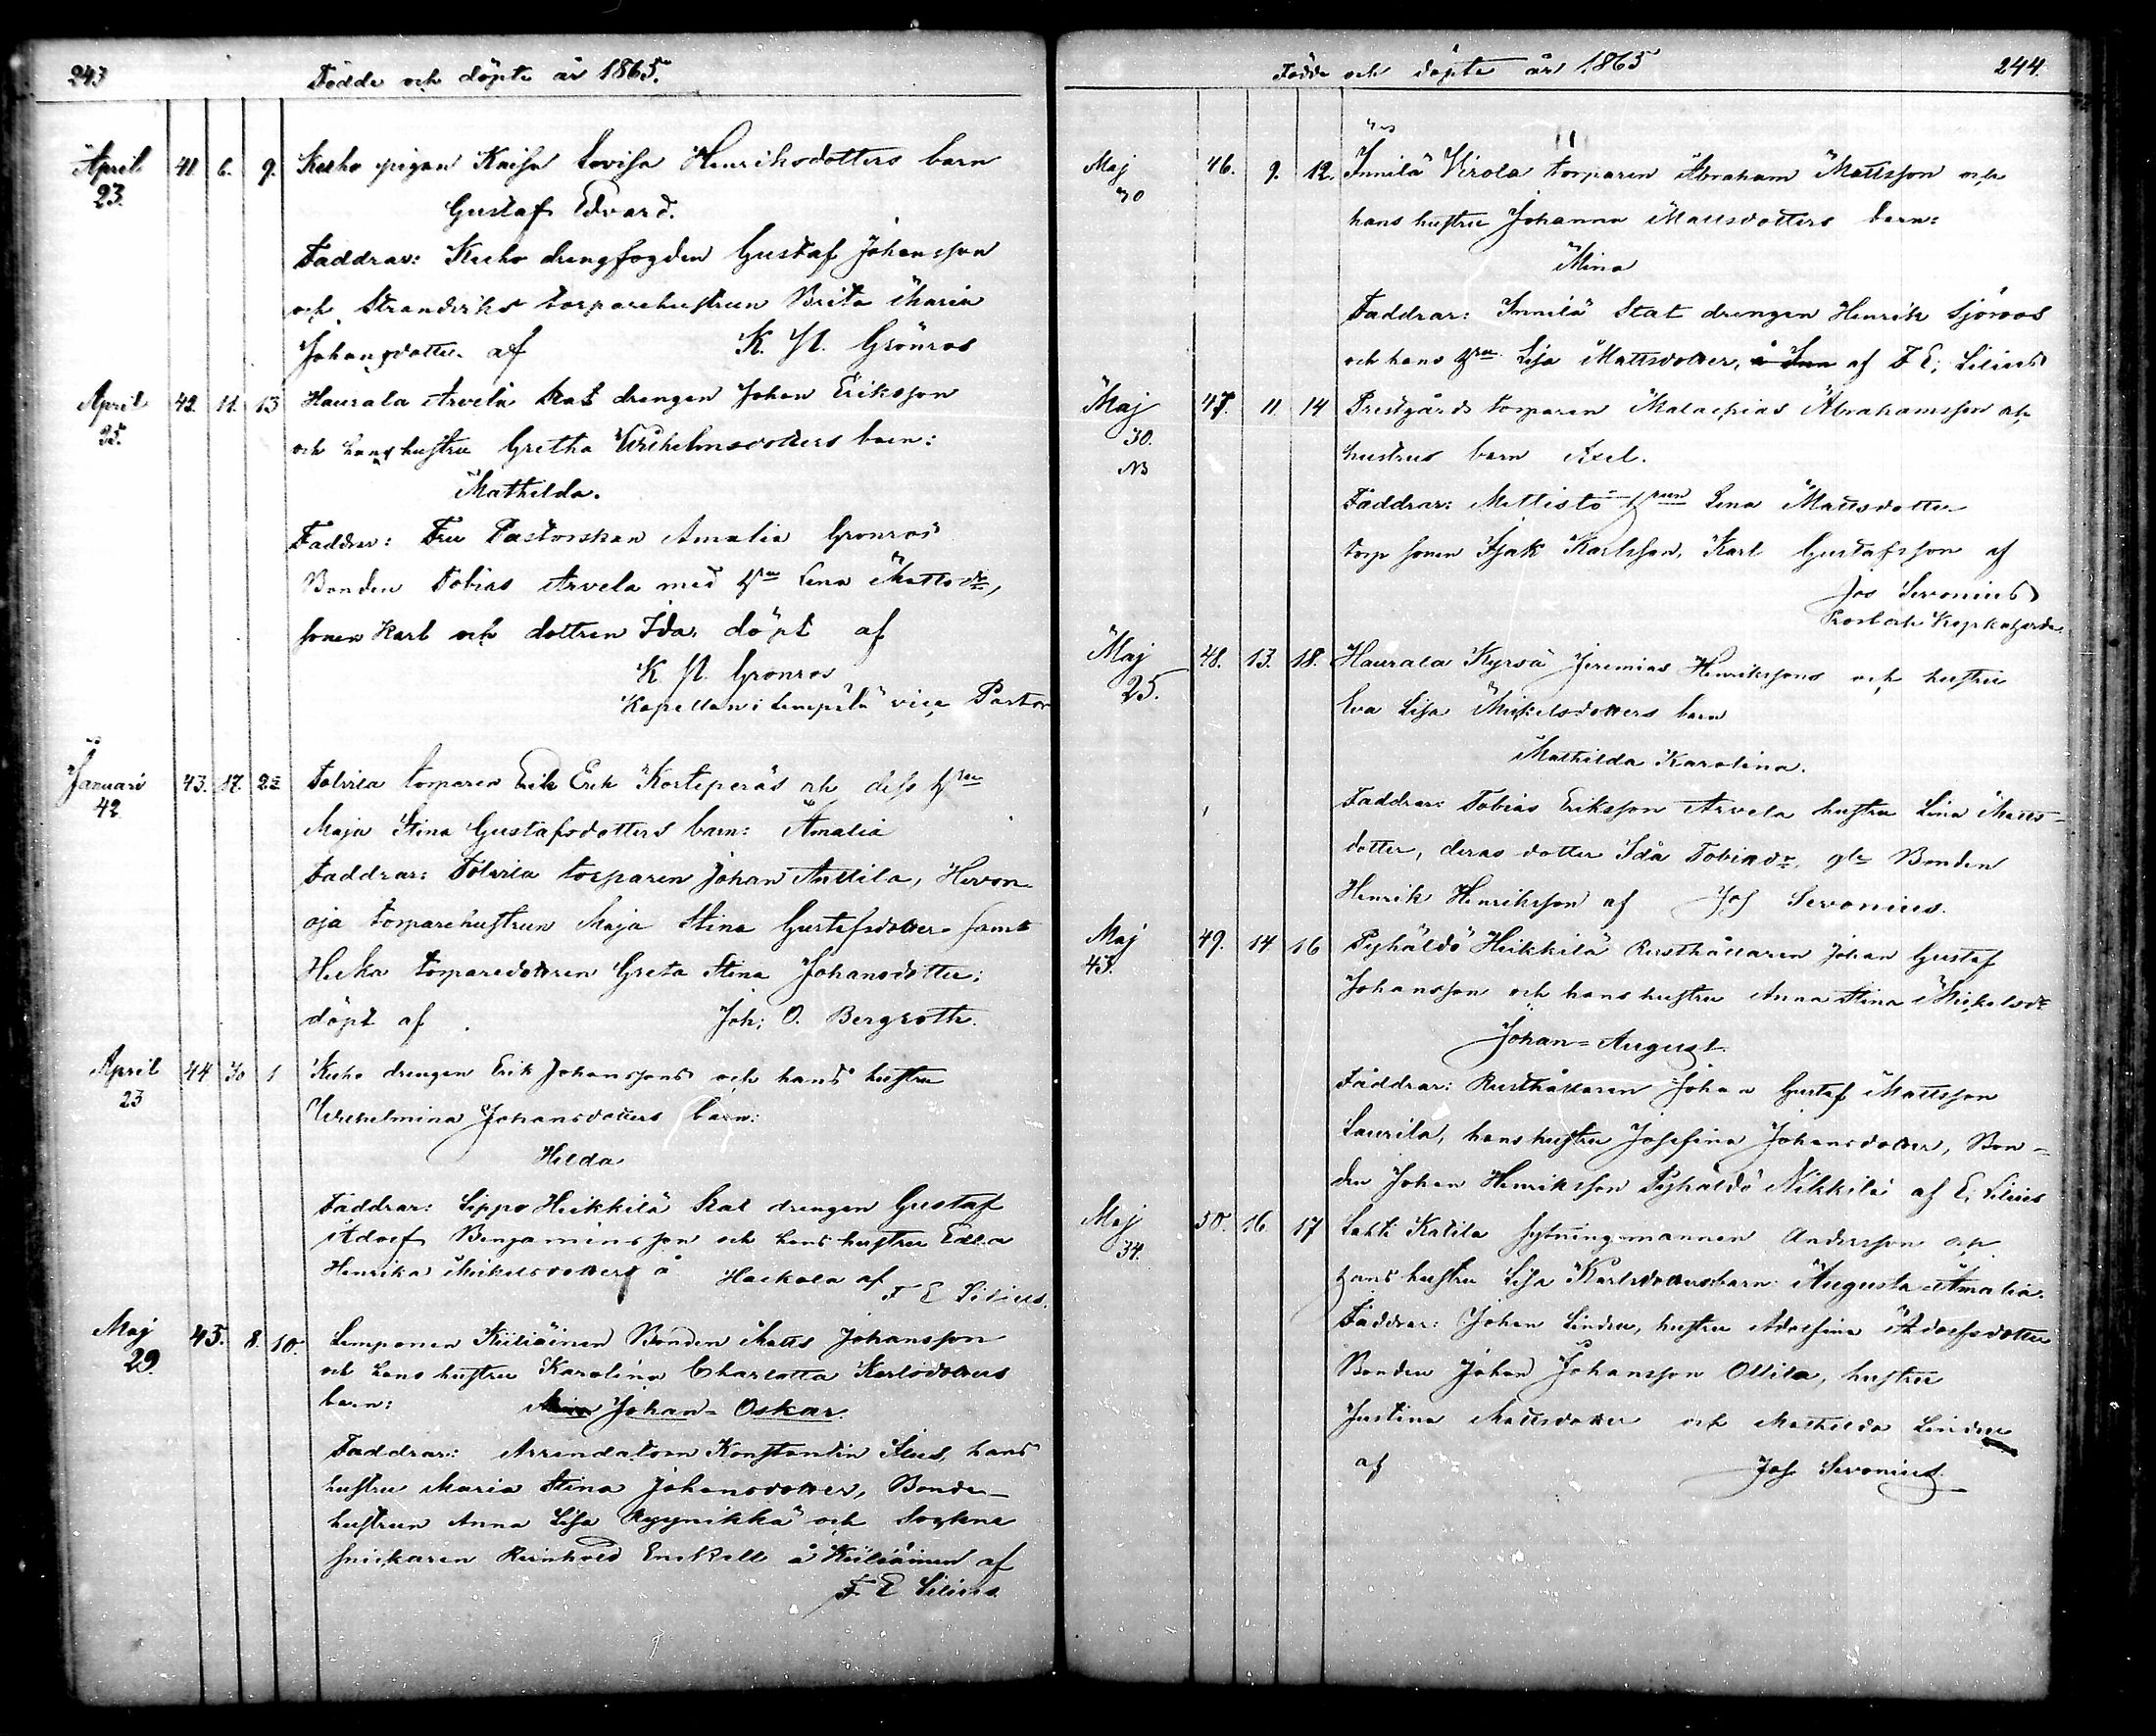 243
Födde och döpte år 1865.
April 41 6. 9. Kurho pigan Kaisa Lovisa Henriksdotters barn
23. Gustaf Edvard.
Faddrar: Kurho drengfogden Gustaf Johansson
och Stranderks torparehustrun Brita Maria
Johansdotter af K. N. Grönros
April 42. 11. 13 Haurala Arvela Stat drengen Johan Eriksson
35. och hans hustru Gretha Wilhelmsdotters barn:
Mathilda.
Faddrar: Fru Pastorskan Amalia Gronros
Bonden Tobias Arvela med hu Lena Mattsdr,
sonen Karl och dottren Ida, döpt af
K N. Gronros
Kapellan i Lempälä vice Pastor
Januari 43. 17. 22 Tolvila torparen Erik Erik Korteperäs och dess hru
42 Maja Stina Gustafsdotters barn: Amalia
Faddrar: Tolvila torparen Johan Anttila, Hevon
oja torparehustrun Maja Stina Gustafsdotter samt
torparedottren Greta Stina Johansdotter;
döpt af Joh; O. Bergroth.
April 44 30 1 Kurho drengen Erik Johanssons och hans hustru
23 Wilhelmina Johansdotters barn:
Hilda
Faddrar: Sippo Heikkilä Stat drengen Gustaf
Adolf Benjaminsson och hans hustru Edla
Henrika Mickelsdotters å Hackala af
F E Silius.
Maj 45. 8. 10. Lemponen Kiiliäinen Bonden Matts Johansson
29. och hans hustru Karolina Charlotta Karlsdotters
barn: Johan-Oskar.
Faddrar: Arrendatorn Konstantin hans
hustru Maria Stina Johansdotter, Bonde-
hustrun Anna Lisa Ryynikkä och Sockne
snickaren Reinhold Enskell å Kiiliäinen af
F. E Silius.
Födde och döpte år 1865
244.
Maj 46. 9. 12. Innilä Virola torparen Abraham Mattsson och
30 hans hustru Johanna Mattsdotters barn:
Mina
Faddrar: Innilä Stat drengen Henrik Sjöroos
och hans hru Lisa Mattsdotter, af F E; Silius
Maj 47. 11 14 Prestgårds torparen Malachias Abrahamsson och
30. hustrus barn Axel.
NB
Faddrar: Mellistö hrun Lena Mattsdotter
torp sonen Isak Karlsson, Karl Gustafsson af
Jos Servonius
Prost och Kyrkoherde.
Maj 48. 13. 18. Haurala Kyrsä Jeremias Henrikssons och hustru
25. Eva Lisa Mickelsdotters barn
Mathilda Karolina.
Faddrar: Tobias Eriksson Arvela hustru Lina Matts-
dotter, deras dotter Ida Tobiadr, gle Bonden
Henrik Henriksson af Jos Servonius.
Maj 49. 14 16 Pyhäldö Heikkilä Rusthållaren Johan Gustaf
43. Johansson och hans hustru Anna Stina Mickelsdr
Johan=August
Faddrar: Rusthållaren Johan Gustaf Mattsson
Laurila, hans hustru Josefina Johansdotter, Bon-
den Johan Henriksson Pyhäldö Nikkilä af E; Silius
Maj 50. 16. 17 Lahti Katila sytningsmannen Andersson och
34. hans hustru Lisa Karlsdotters barn: Augusta Amalia.
Faddrar: Johan Linden, hustru Adolfina Adolfsdotter
Bonden Johan Johansson Ollila, hustru
Justina Mattsdotter och Mathilda Linden
af Jos Servonius